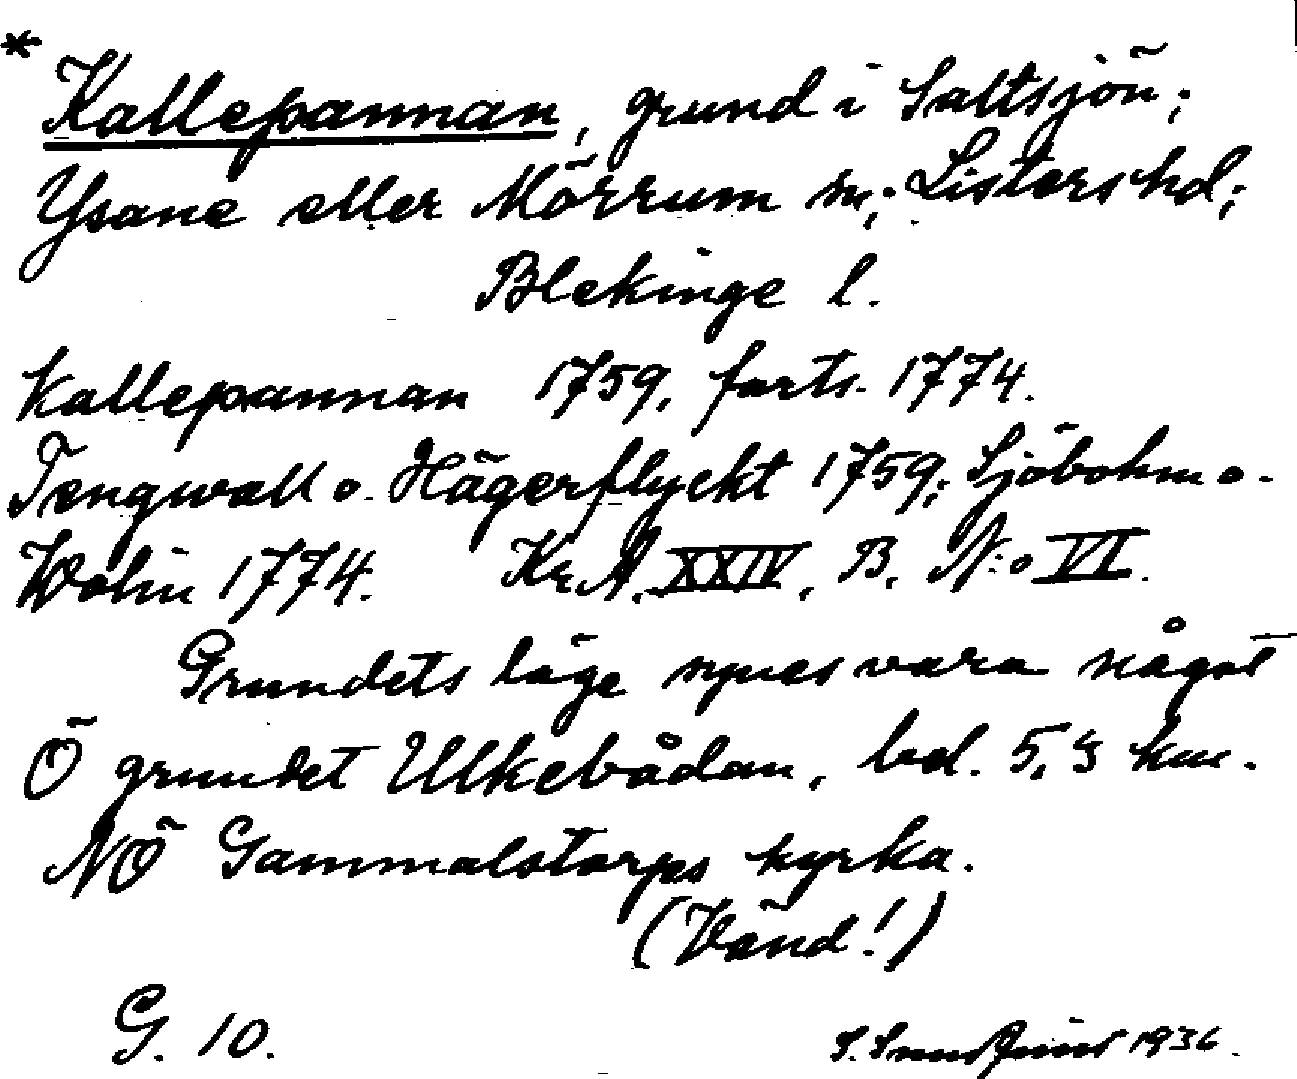 * Kallepannan, grund i Saltsjön;
Ysane eller Mörrum sn; Listers hd;
Blekinge l.
Kallepannan 1759, forts. 1774.
Tengwall o. Hägerflyckt 1759; Sjöbohm o.
Wolin 1774. Kr.A. XXIV, B, N:o VI.
Grundets läge synes vara något
Ö grundet Ulkebådan, bel. 5,3 km.
NÖ Gammalstorps kyrka.
(Vänd!)
G. 10.
S. 1936.